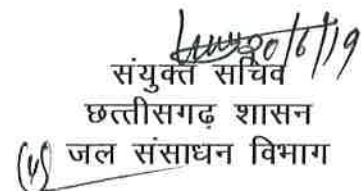 20/6/19
संयुक्त सचिव
छत्तीसगढ़ शासन
(4) जल संसाधन विभाग